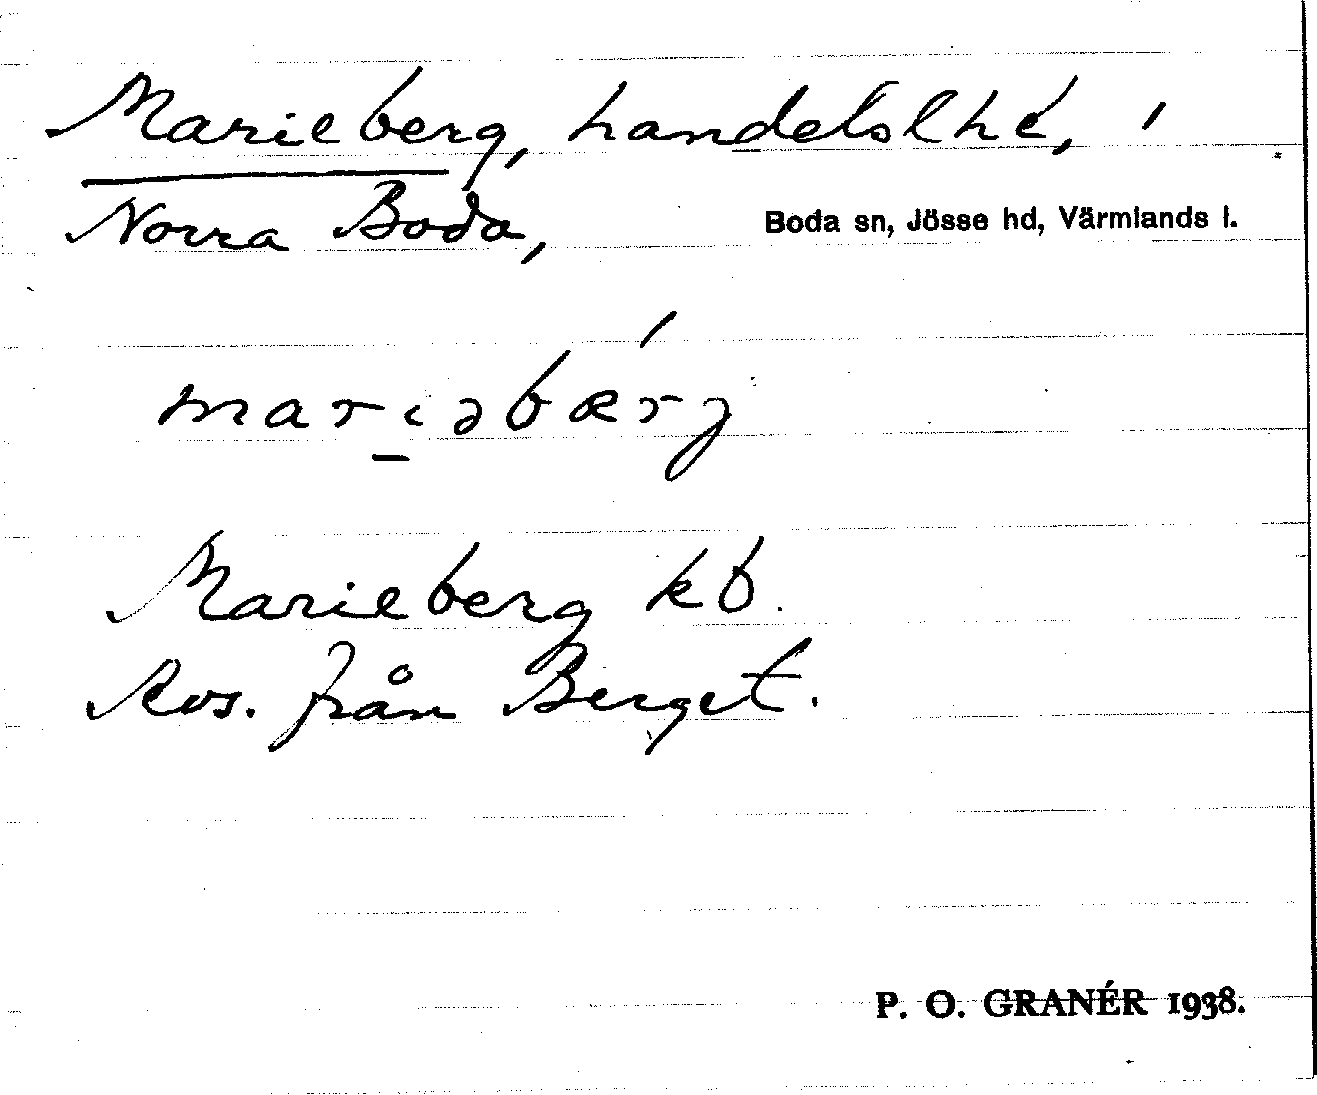 Marieberg, handelslhé, i
Norra Boda, Boda sn, Jösse hd, Värmlands l.
mariəbærg
Marieberg kb.
Avs. från Berget.
P. O. GRANÉR 1938.